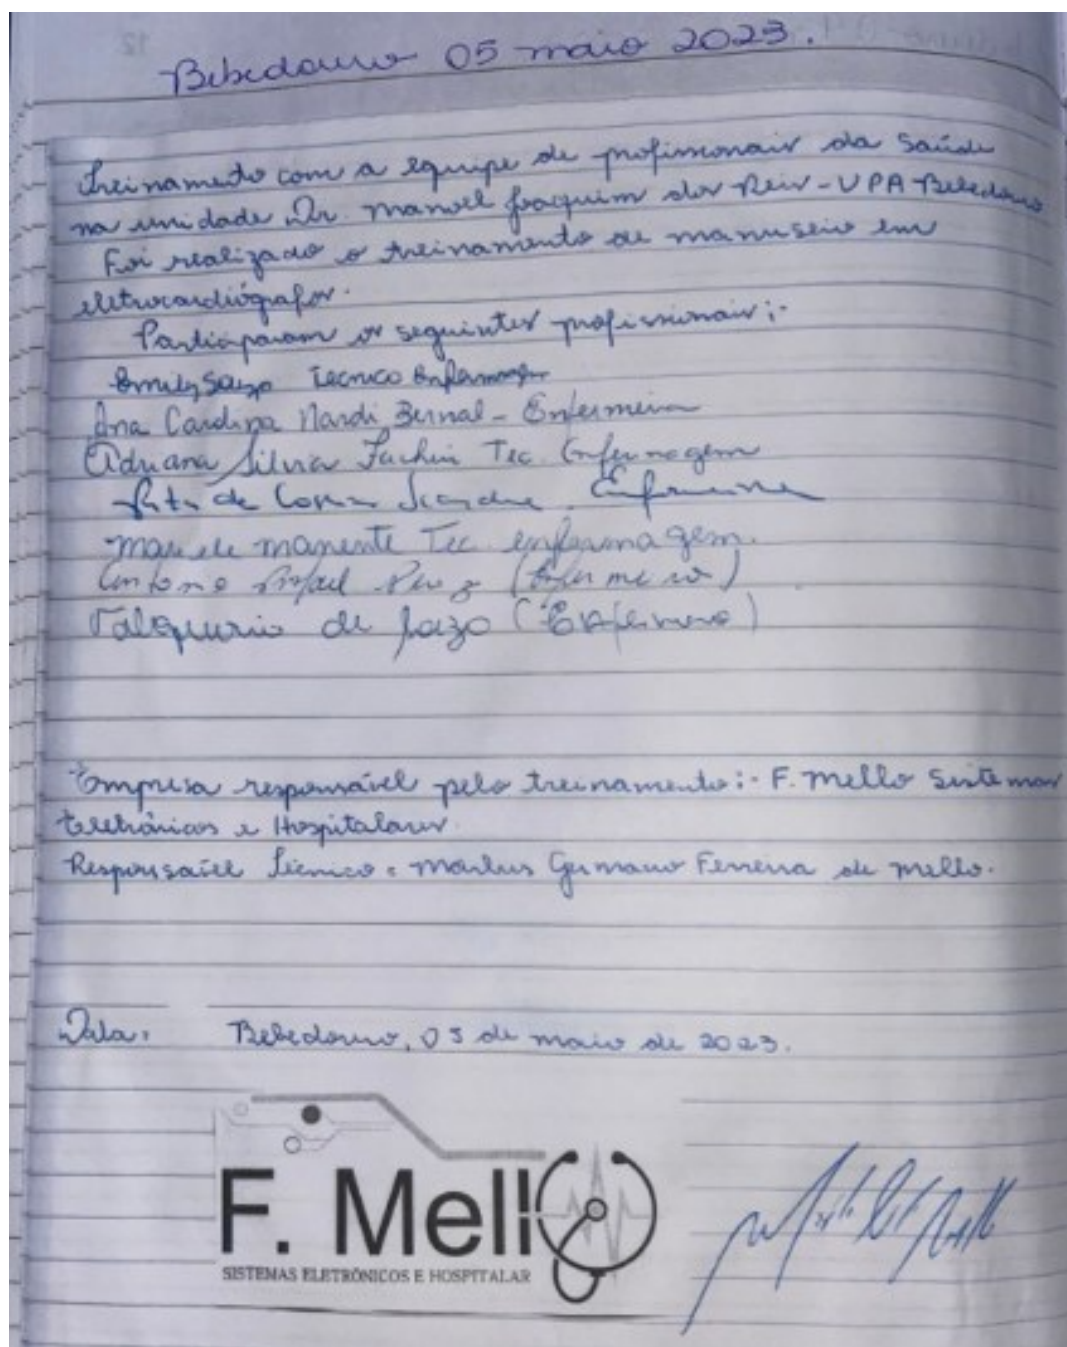 Bebedouro 05 maio 2023.
Treinamento com a equipe de profissionais da Saúde
na unidade Dr. Manoel Joaquim dos Reis - UPA Bebedouro
Foi realizado o treinamento de manuseio em
eletrocardiógrafos.
Participaram os seguintes profissionais:-
Emily Tecnico Enfermagem
Ana Carolina Nardi Bernal - Enfermeira
Adriana Silvia Fachin Tec. Enfermagem
Rita de Enfermeira
manente Tec. enfermagem.
Antonio Rafael (Enfermeiro)
de (Enfermeiro)
Empresa responsável pelo treinamento:- F. Mello Sistemas
Eletrônicos e Hospitalares.
Responsável Técnico: Germano Ferreira de Mello.
Data: Bebedouro, 05 de maio de 2023.
F. Mello
SISTEMAS ELETRÔNICOS E HOSPITALAR